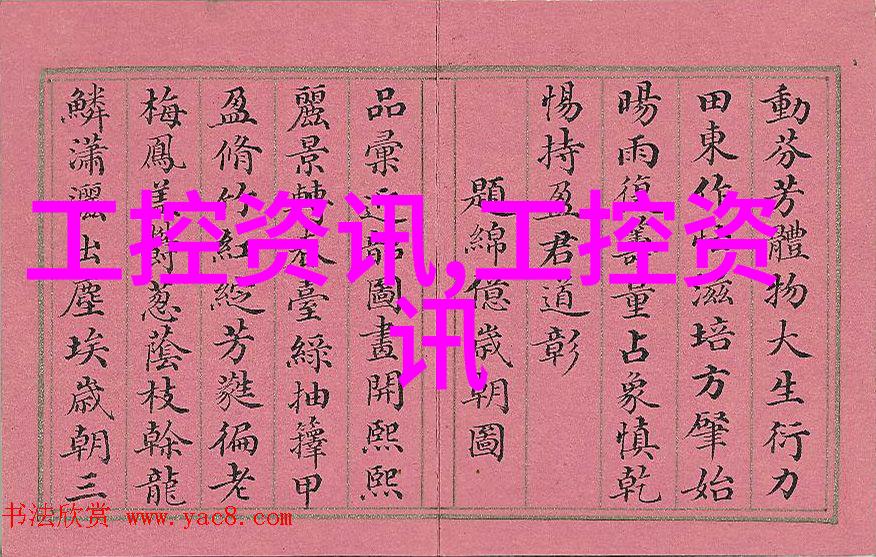 工控资讯,工控资
讯
動芬芳體物大生衍力
田東作滋培方肇始
暘雨復量占象慎乾
惕持盈君道彰
題綿億歲朝圖
品彙圖畫開熙熙
麗景轉春臺綠抽籜甲
盈脩竹紅綻芳蕤徧老
梅鳳蔥蔭枝榦龍
鱗瀟灑出塵埃歲朝三
书法欣赏 www.yac8.com